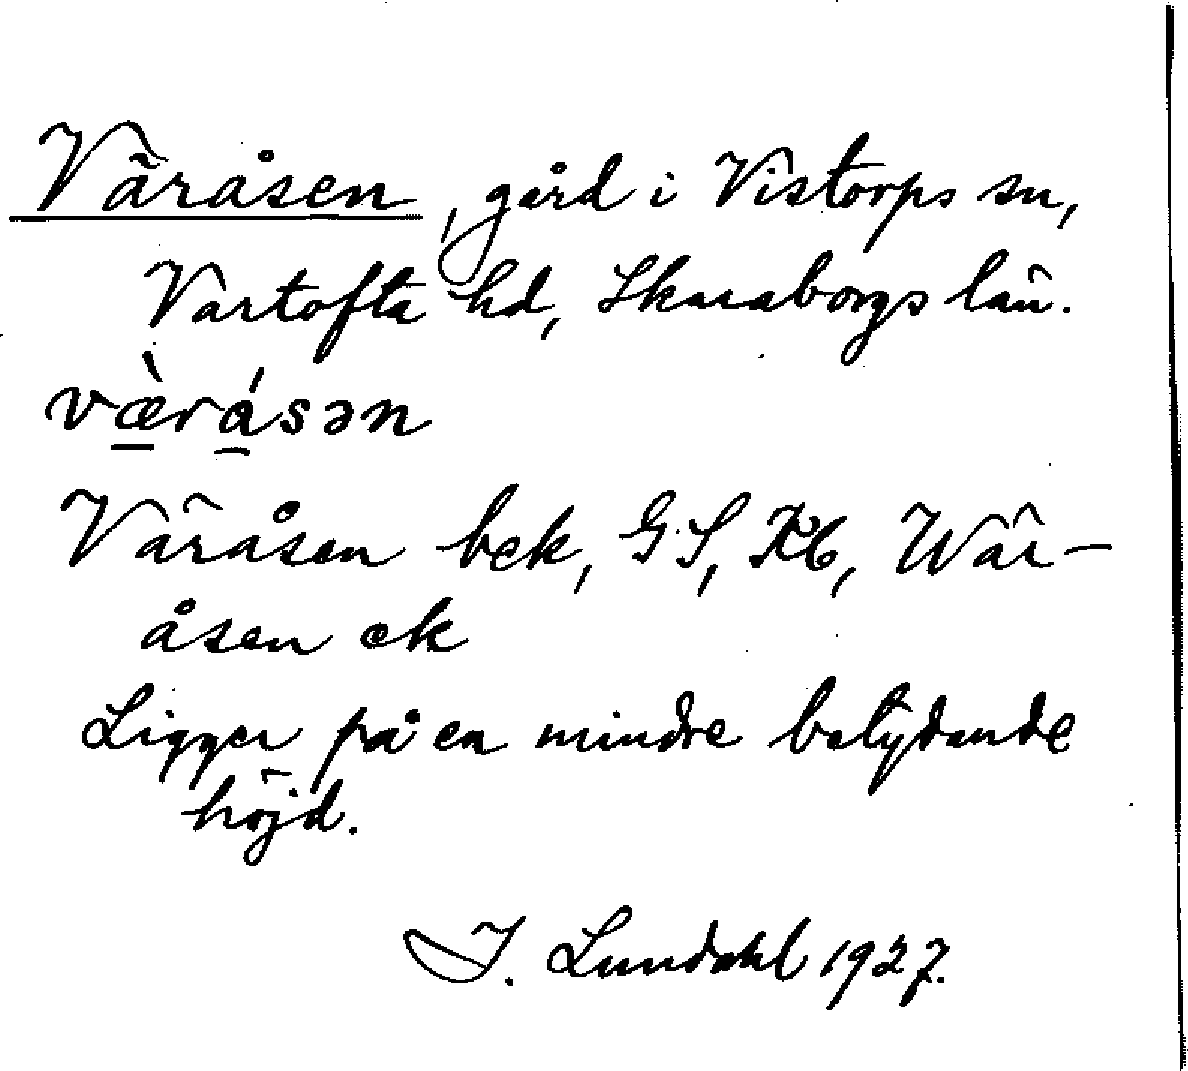 Väråsen, gård i Vistorps sn,
Vartofta hd, Skaraborgs län.
væ̀rásən
Väråsen bek, GS, Kb, Wär-
åsen ek
Ligger på en mindre betydande
höjd.
I. Lundahl 1927.